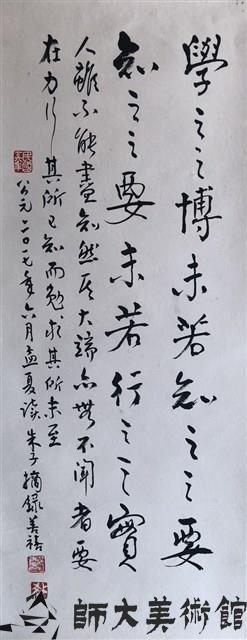 學之之博未若知之之要
知之之要未若行之之實
人雖不能盡知然其大端亦無不聞者要
在力行其所已知而勉求其所未至
公元二〇一七年六月孟夏讀朱子摘錄美禧
師大美術館